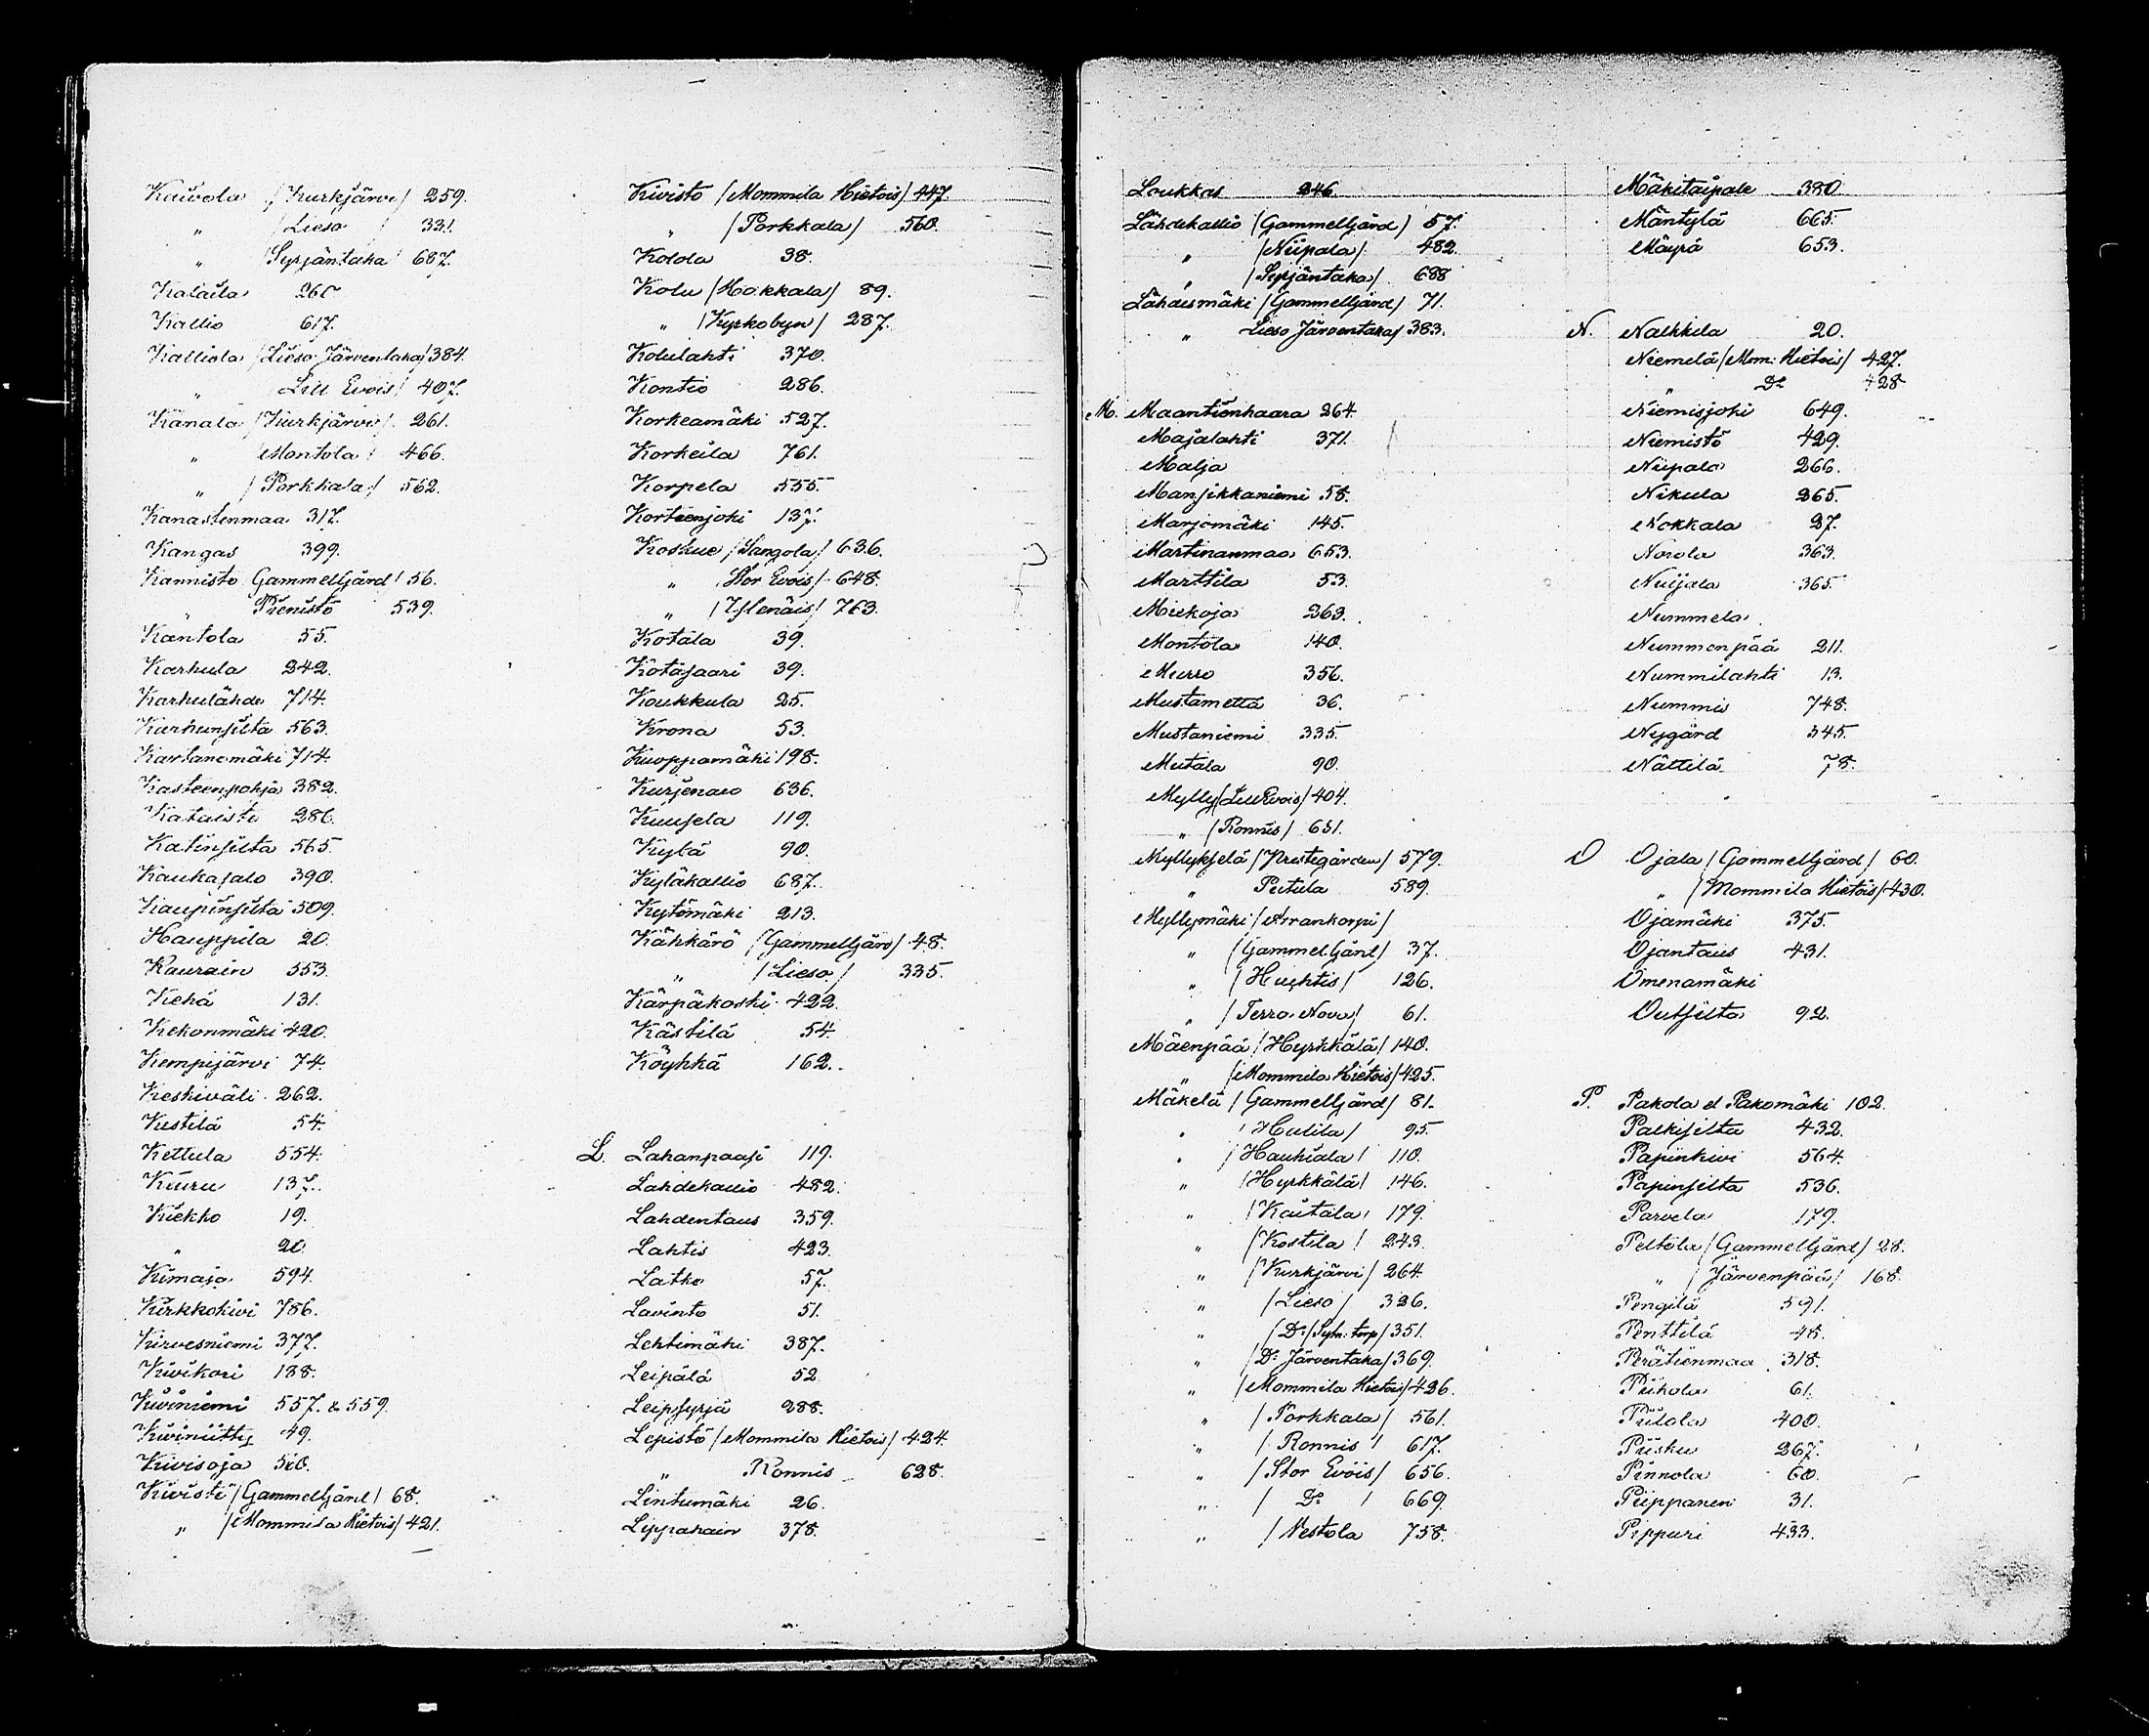 Kaivola /Kurkjärvi/ 259.
" /Lieso/ 331.
" /Syrjäntaka/ 687.
Kalaila 260
Kallio 617.
Kalliola /Lieso Järventaka/ 384.
" Lill Evois/ 407.
Kanala /Kurkjärvi/ 261.
" /Montola/ 466.
" /Porkkala/ 562.
Kanastenmaa 317.
Kangas 399.
Kannisto Gammelgård/ 56.
" Pienistö 539.
Kantola 55.
Karhula 242.
Karhulähde 714.
Karhunsilta 563.
Kartanomäki 714.
Kasteenpohja 382.
Kataisto 286.
Katinsilta 565.
Kaukasalo 390.
Kaupinsilta 509.
Kauppila 20.
Kaurain 553.
Kehä 131.
Kekonmäki 420.
Kempijärvi 74.
Keskiväli 262.
Kestilä 54.
Kettula 554.
Kiuru 137.
Kiekho 19.
" 20.
Kimaja 594.
Kirkkokivi 786.
Kirvesniemi 377.
Kivikori 188.
Kiviniemi 557. & 559.
Kiviniitty 49.
Kivisoja 510.
Kivistö /Gammelgård/ 68.
" /Mommila Hietois/ 421.
Kivistö /Mommila Hietois/ 447.
" /Porkkala/ 560.
Kolola 38.
Kolu /Hokkala/ 89.
" /Kyrkobyn/ 287.
Kolulahti 370.
Kontio 286.
Korkeamäki 527.
Korkeila 761.
Korpela 555.
Korteenjoki 137.
Koskue /Sangola/ 636.
" Stor Evois/ 648.
" /Ylenäis/ 763.
Kotala 39.
Kotasaari 39.
Koukkula 25.
Krona 53.
Kuoppamäki 198.
Kurjenaro 636.
Kuusela 119.
Kylä 90.
Kyläkallio 687.
Kytömäki 213.
Kähkärö /Gammelgård/ 48.
" /Lieso/ 335.
Kärpäkoski 422.
Kästilä 54.
Köyhkä 162.
L. Lahanpaasi 119.
Lahdekallio 482.
Lahdentaus 359.
Lahtis 423.
Latko 57.
Lavinto 51.
Lehtimäki 387.
Leipälä 52.
Leipsyrjä 288.
Lepistö /Mommila Hietois/ 424.
" Ronnis 628.
Lintumäki 26.
Lippahain 378.
Loukkas 246.
Lähdekallio /Gammelgård/ 57.
" /Niipala/ 482.
" /Syrjäntaka/ 688
Lähdesmäki /Gammelgård/ 71.
" Lieso Järventaka/ 383.
M. Maantienhaara 264.
Majalahti 371.
Malja
Mansikkaniemi 58.
Marjomäki 145.
Martinanmaa 653.
Marttila 53.
Miekoja 263.
Montola 140.
Murro 356.
Mustametta 36.
Mustaniemi 335.
Mutala 90.
Mylly /Lill Evois/ 404.
" /Ronnis/ 651.
Myllykselä /Prestegården/ 579.
" Putula 589.
Myllymäki /Arrankorpi/
" /Gammelgård/ 37.
" /Huhtis/ 126.
" /Terra Nova/ 61.
Mäenpää /Hyrkkälä/ 140.
" /Mommila Hietois/ 425.
Mäkelä /Gammelgård/ 81.
" /Hulila/ 95.
" /Hauhiala/ 110.
" /Hyrkkälä/ 146.
" /Kaitala/ 179.
" /Kostila/ 243.
" /Kurkjärvi/ 264.
" /Lieso/ 326.
" /Do /Sytn. torp/ 351.
" /Do Järventaka/ 369.
" /Mommila Hietois/ 426.
" /Porkkala/ 561.
" /Ronnis/ 617.
" /Stor Evois/ 656.
" / Do / 669.
" /Nestola 758.
Mäkitaipale 380.
Mäntylä 665.
Mäyrä 653.
N. Nalkkila 20.
Niemelä /Mom: Hietois/ 427.
" Do 428
Niemisjoki 649.
Niemistö 429.
Niipala 266.
Nikula 265.
Nokkala 27.
Norola 363.
Nuijala 365.
Nummela.
Nummenpää 211.
Nummilahti 13.
Nummis 748.
Nygård 345.
Nättilä 78.
O Ojala /Gammelgård/ 60.
" /Mommila Hietois/ 430.
Ojamäki 375.
Ojantaus 431.
Omenamäki
Outsilta 92.
P. Pakola el Pakomäki 102.
Palkisilta 432.
Papinkivi 564.
Papinsilta 536.
Parvela 179.
Peltola /Gammelgård/ 28.
" /Järvenpää/ 168.
Pengilä 591.
Penttilä 48.
Perätienmaa 318.
Piikola 61.
Piilola 400.
Piisku 267.
Pinnola 60.
Piippanen 31.
Pippuri 433.